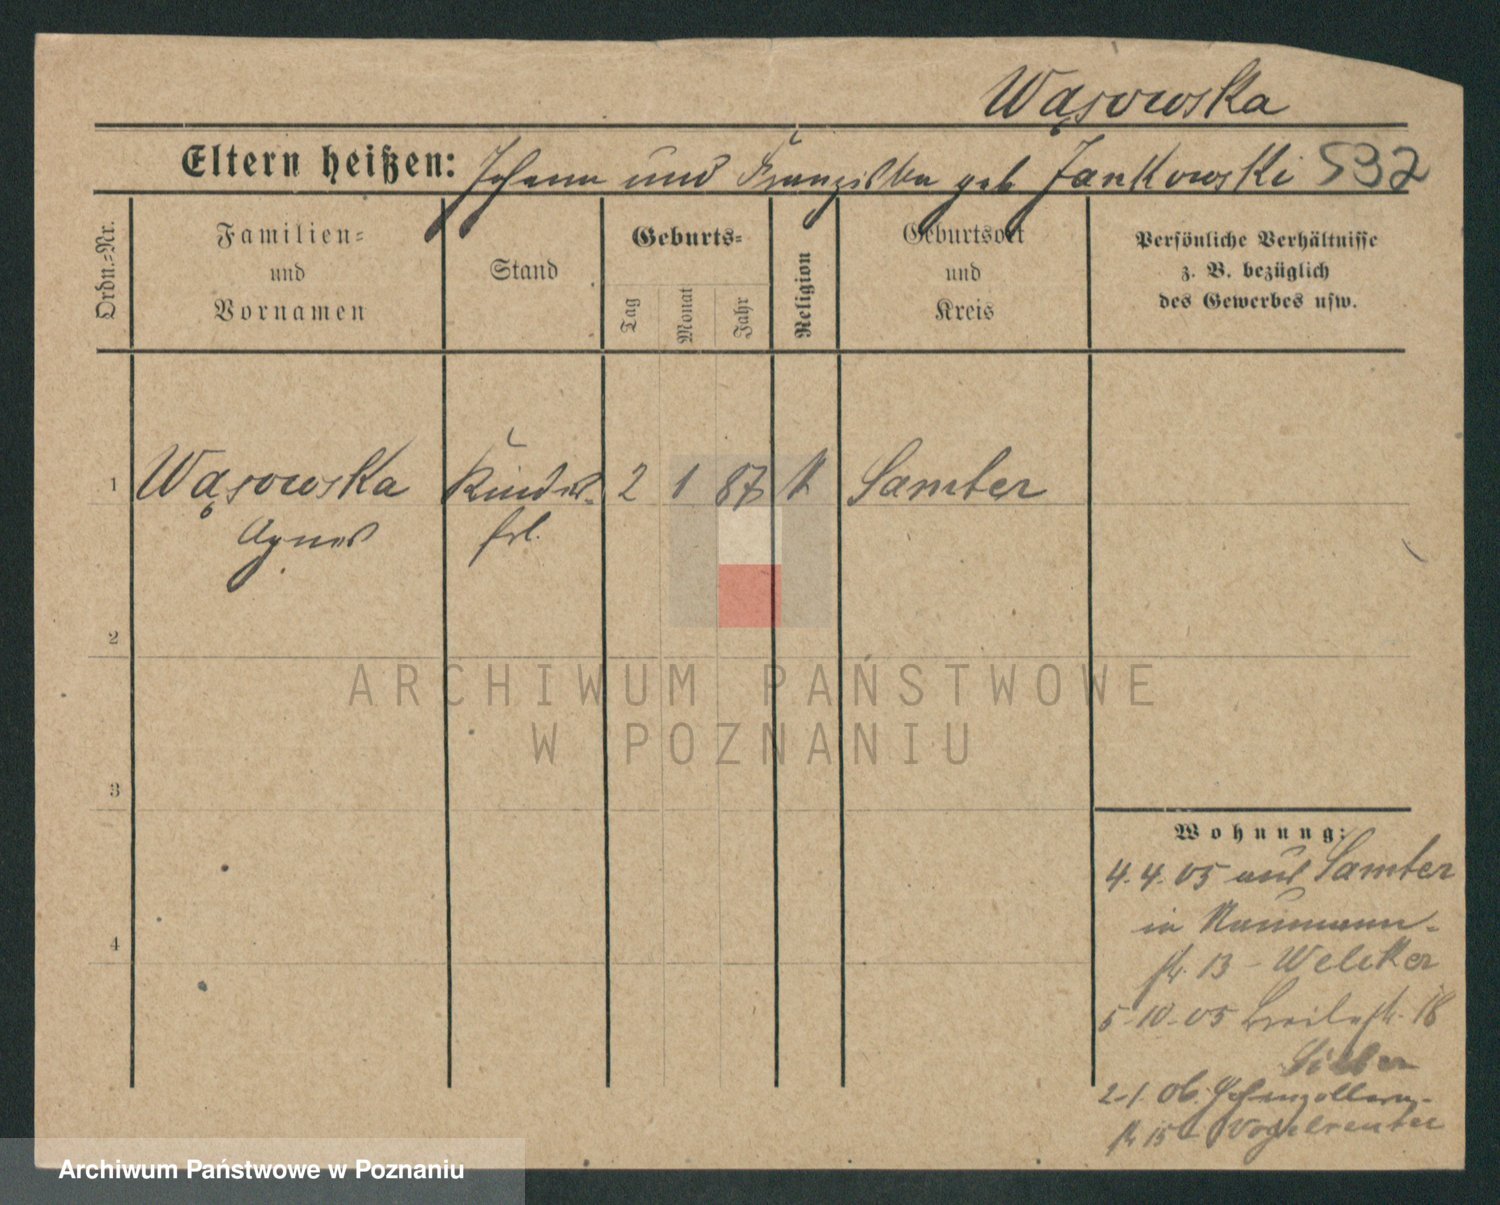 Wąsowska
Eltern heißen: Johann und Franziska geb Jankowski 532
Ordn.-Nr.
Familien-
und
Vornamen
Stand
Geburts-
Tag
Monat
Jahr
Religion
Geburtsort
und
Kreis
Persönliche Verhältnisse
z. B. bezüglich
des Gewerbes usw.
1 Wąsowska Kinder- 2 1 87 K Samter
Agnes frl.
2
ARCHIWUM PAŃSTWOWE
W POZNANIU
3
Wohnung:
4.4.05 aus Samter
in Naumann-
str. 13 - Welcker
4
5-10-05 Breitestr. 18
2-1. 06. Hohenzollern-
str 15 - Vogelreuter
Archiwum Państwowe w Poznaniu